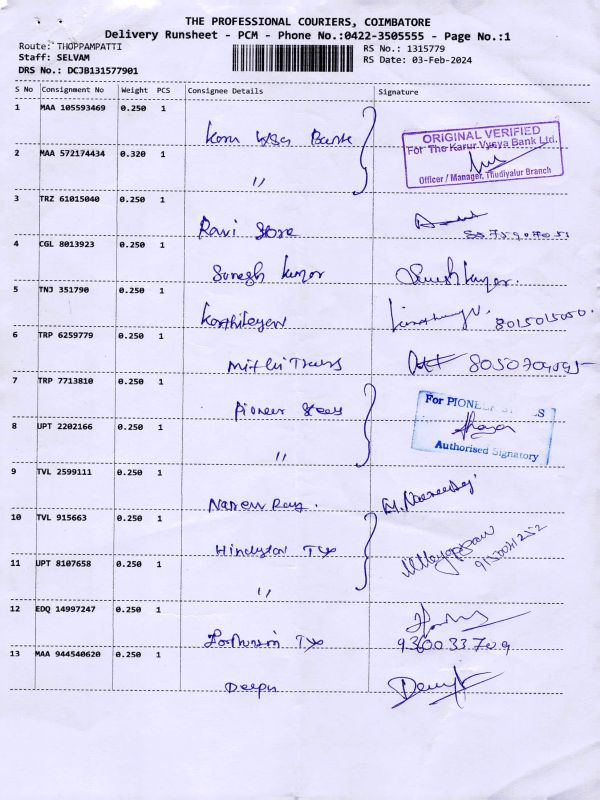 THE PROFESSIONAL COURIERS, COIMBATORE
Delivery Runsheet - PCM - Phone No.:0422-3505555 - Page No.:1
Route: THOPPAMPATTI
RS No.: 1315779
Staff: SELVAM
RS Date: 03-Feb-2024
DRS No.: DCJB131577901
S No Consignment No Weight PCS Consignee Details Signature
1 MAA 105593469 0.250 1
Bank
ORIGINAL VERIFIED
For The Karur Vysya Bank Ltd.
Officer / Manager, Thudiyalur Branch
2 MAA 572174434 0.320 1
"
3 TRZ 61015040 0.250 1
Ravi Store
4 CGL 8013923 0.250 1
Suresh kumar
5 TNJ 351790 0.250 1
Karthikeyan
8015015050.
6 TRP 6259779 0.250 1
7 TRP 7713810 0.250 1
Pioneer
For PIONEER
Authorised Signatory
8 UPT 2202166 0.250 1
"
9 TVL 2599111 0.250 1
Naren Raj.
10 TVL 915663 0.250 1
Hindustan Tex
11 UPT 8107658 0.250 1
"
12 EDQ 14997247 0.250 1
Tex
9360033709
13 MAA 944540620 0.250 1
Deepu